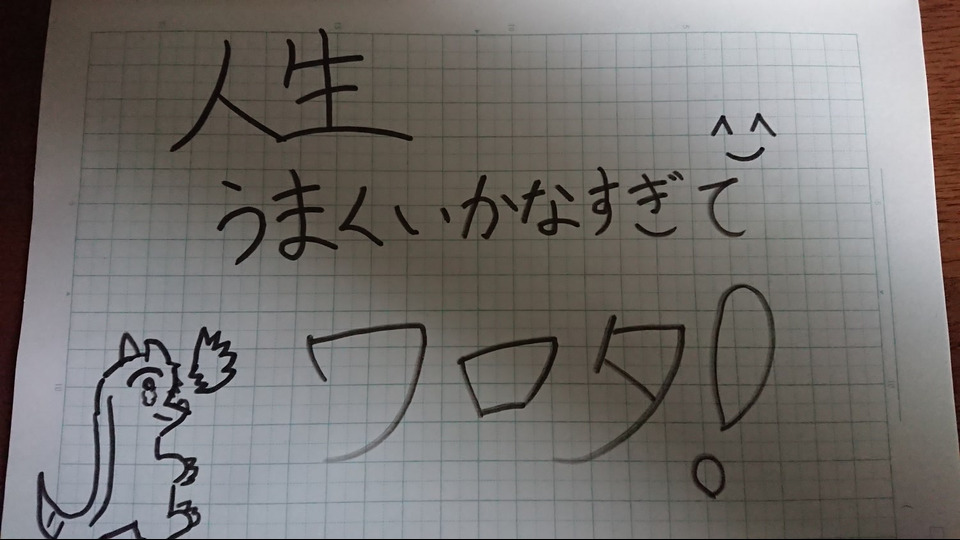 人生
^^
うまくいかなすぎて
ワロタ!